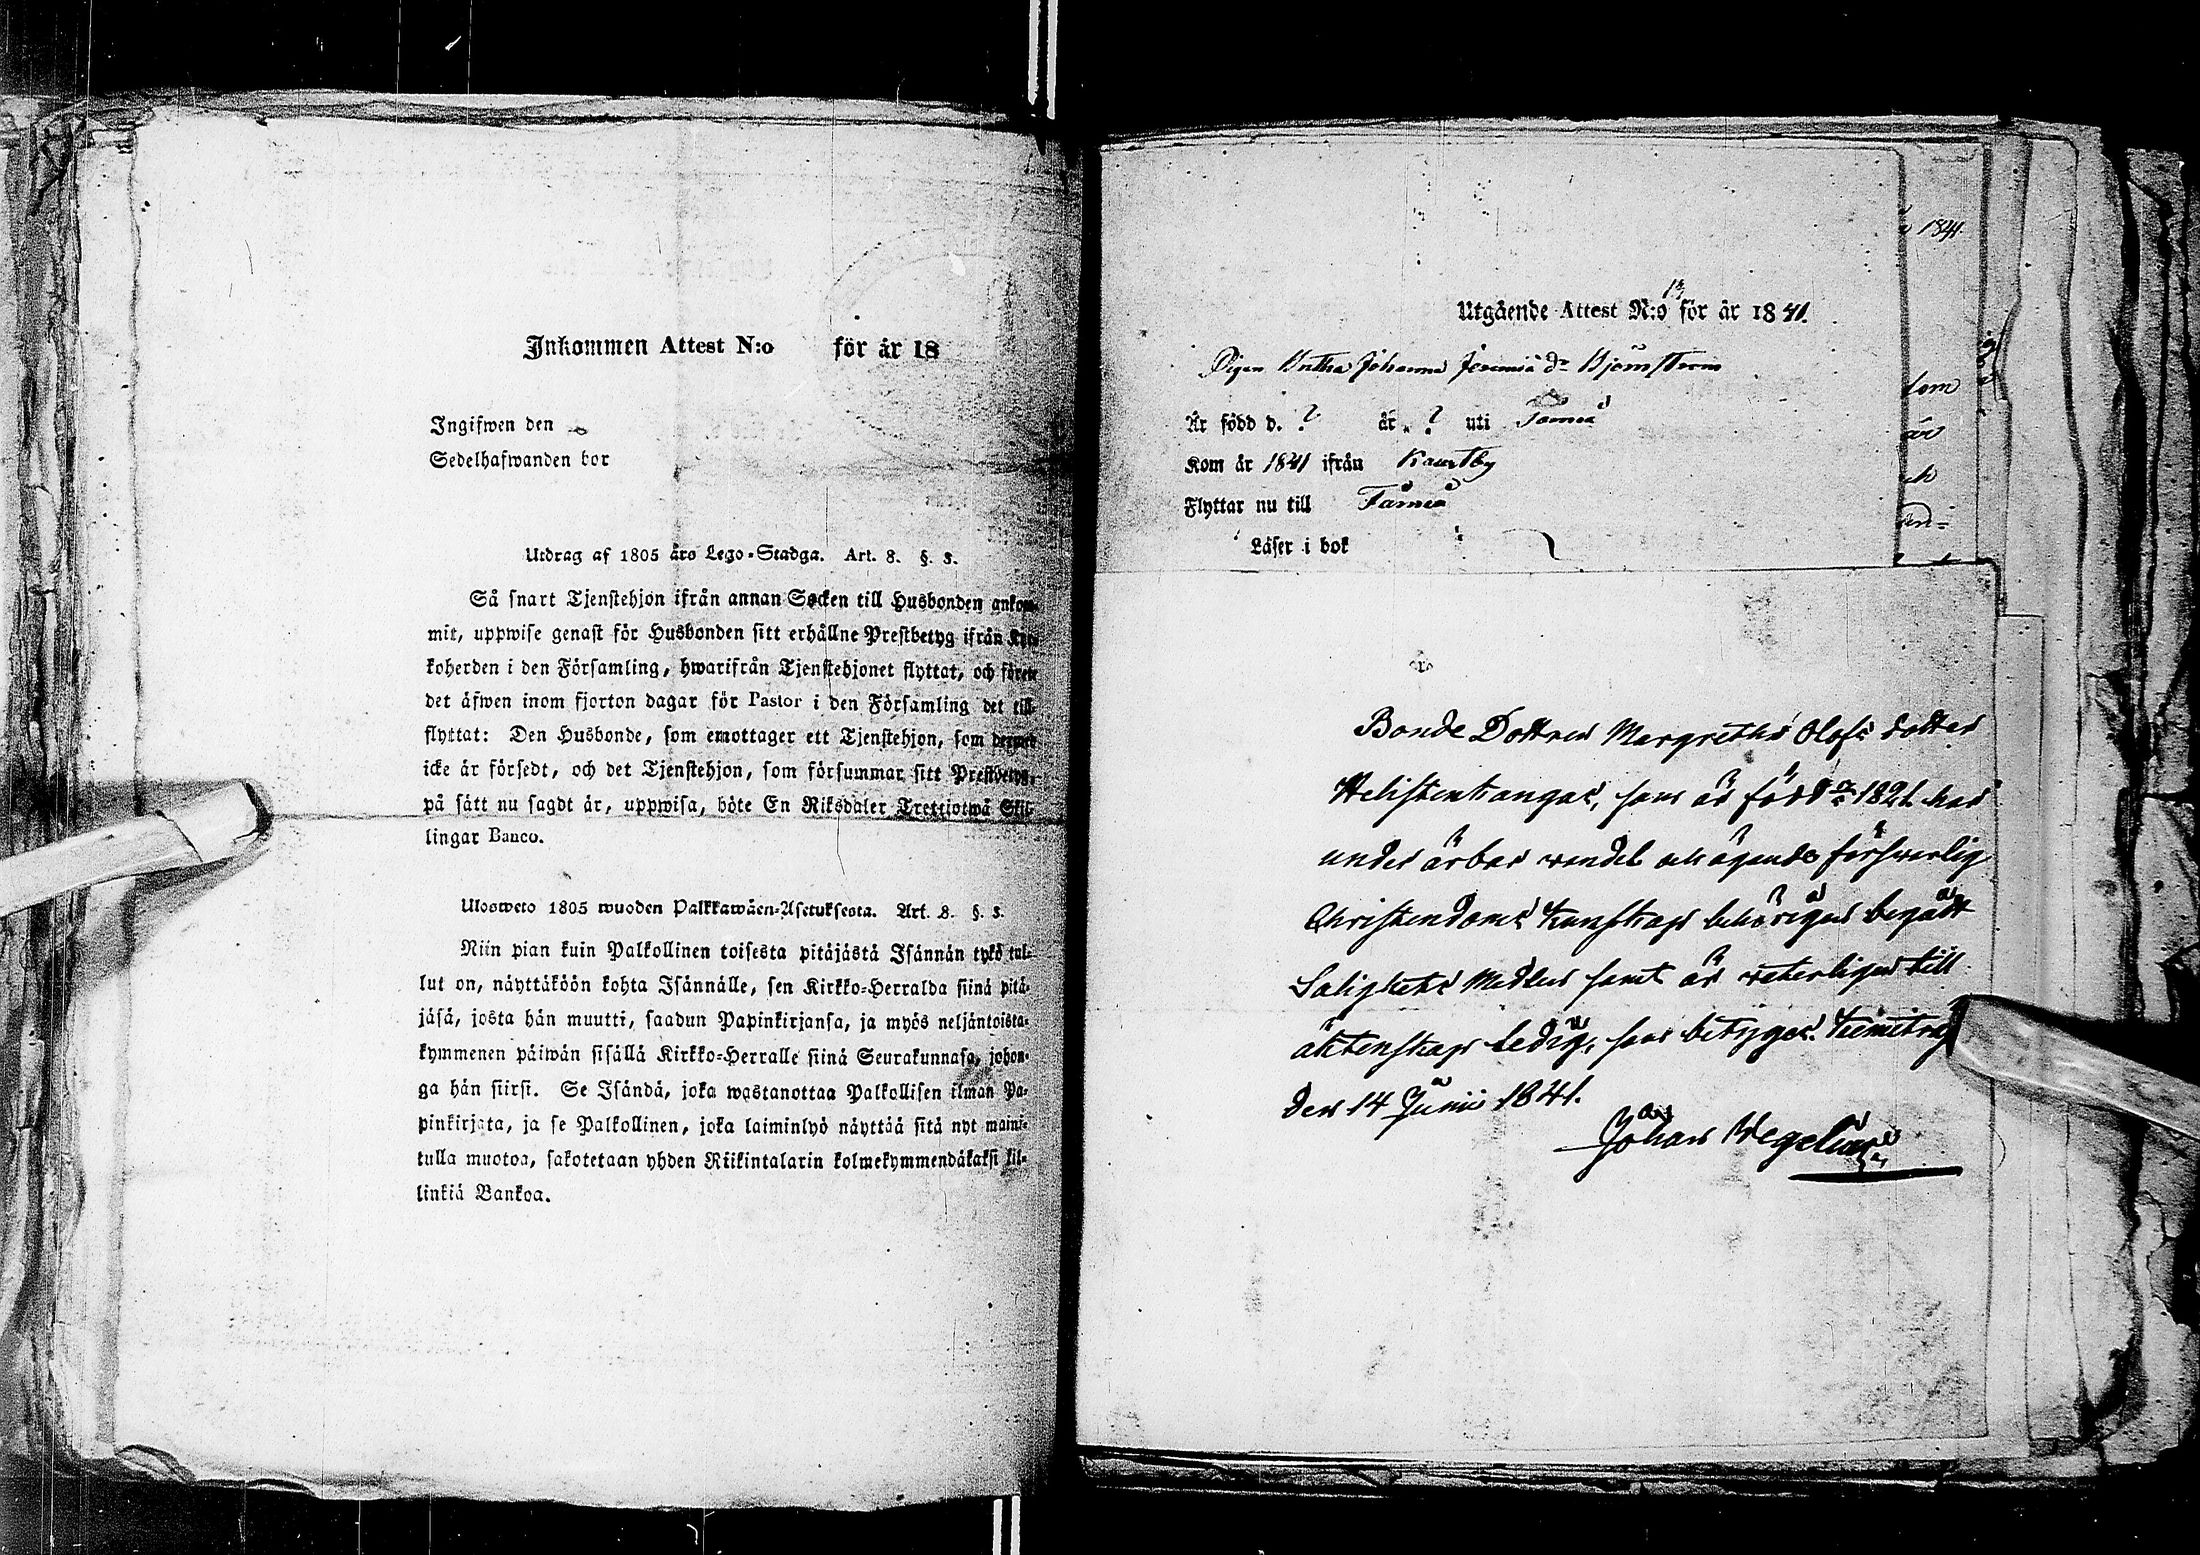 Inkommen Attest N:o för år 18
Ingifwen den
Sedelhafwanden bor
Utdrag af 1805 års Lego-Stadga. Art. 8. §. 3.
Så snart Tjenstehjon ifrån annan Socken till Husbonden ankom-
mit, uppwise genast för Husbonden sitt erhållne Prestbetyg ifrån Kyr-
koherden i den Församling, hwarifrån Tjenstehjonet flyttat, och förete
det äfwen inom fjorton dagar för Pastor i den Församling det till-
flyttat: Den Husbonde, som emottager ett Tjenstehjon, som dermed
icke är försedt, och det Tjenstehjon, som försummar sitt Prestbetyg,
på sätt nu sagdt är, uppwisa, böte En Riksdaler Trettiotwå Skil-
lingar Banco.
Ulosweto 1805 wuoden Palkkawäen-Asetuksesta. Art. 8. §. 3.
Niin pian kuin Palkollinen toisesta pitäjästä Isännän tykö tul-
lut on, näyttäköön kohta Isännälle, sen Kirkko-Herralda siinä pitä-
jäsä, josta hän muutti, saadun Papinkirjansa, ja myös neljäntoista-
kymmenen päiwän sisällä Kirkko-Herralle siinä Seurakunnasa, johon-
ga hän siirsi. Se Isändä, joka wastanottaa Palkollisen ilman Pa-
pinkirjata, ja se Palkollinen, joka laiminlyö näyttää sitä nyt maini-
tulla muotoa, sakotetaan yhden Riikintalarin kolmekymmendäkaksi kil-
linkiä Bankoa.
1841.
Utgående Attest N:o för år 1841.
Pigan Johanna Björnström
Är född d. ? år ? uti Torneå
Kom år 1841 ifrån
Flyttar nu till Torneå
Läser i bok
som
är
ch
Bonde Dottren Margretha Olofs dotter
som är född 1821. har
under ärbar wandel och ägande förswarlig
Christendoms kunskap behörigen begått
Salighets Medlen samt är weterligen till
äktenskap ledig, som betygas.
den 14 Junii 1841.
Johan Wegelius